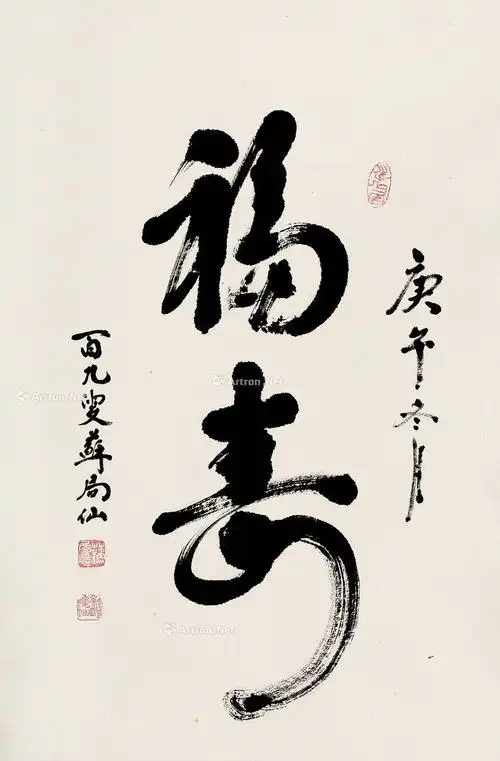 庚午冬月
福寿
百九叟蘇局仙
Artron.Net
Artron.Net
Artron.Net
Artron.Net